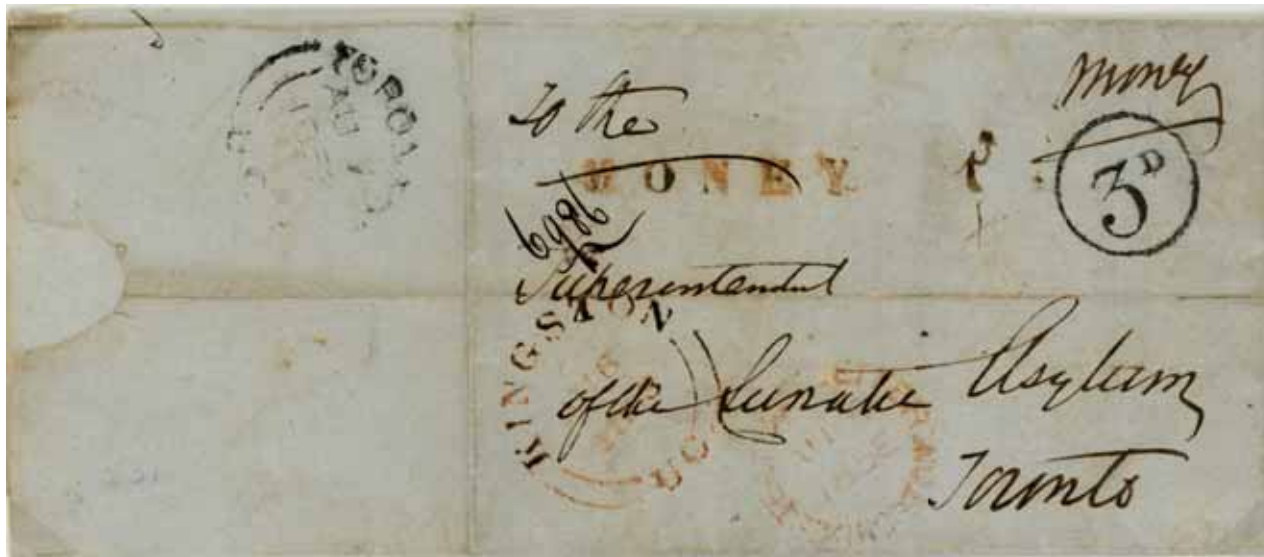 TORON
AU
money
To the
MONEY.
3D
6986
Superintendent
KINGSTON
U C
of the Lunatic Asylum
Toronto